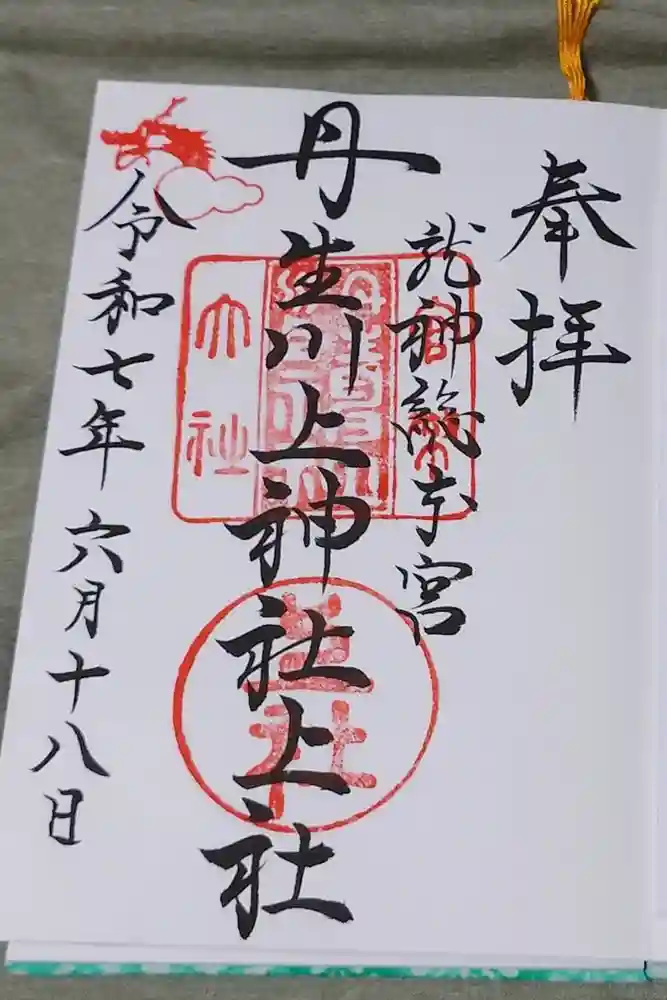 奉拝
龍神総本宮
丹生川上神社上社
令和七年六月十八日
官幣
大社
上社